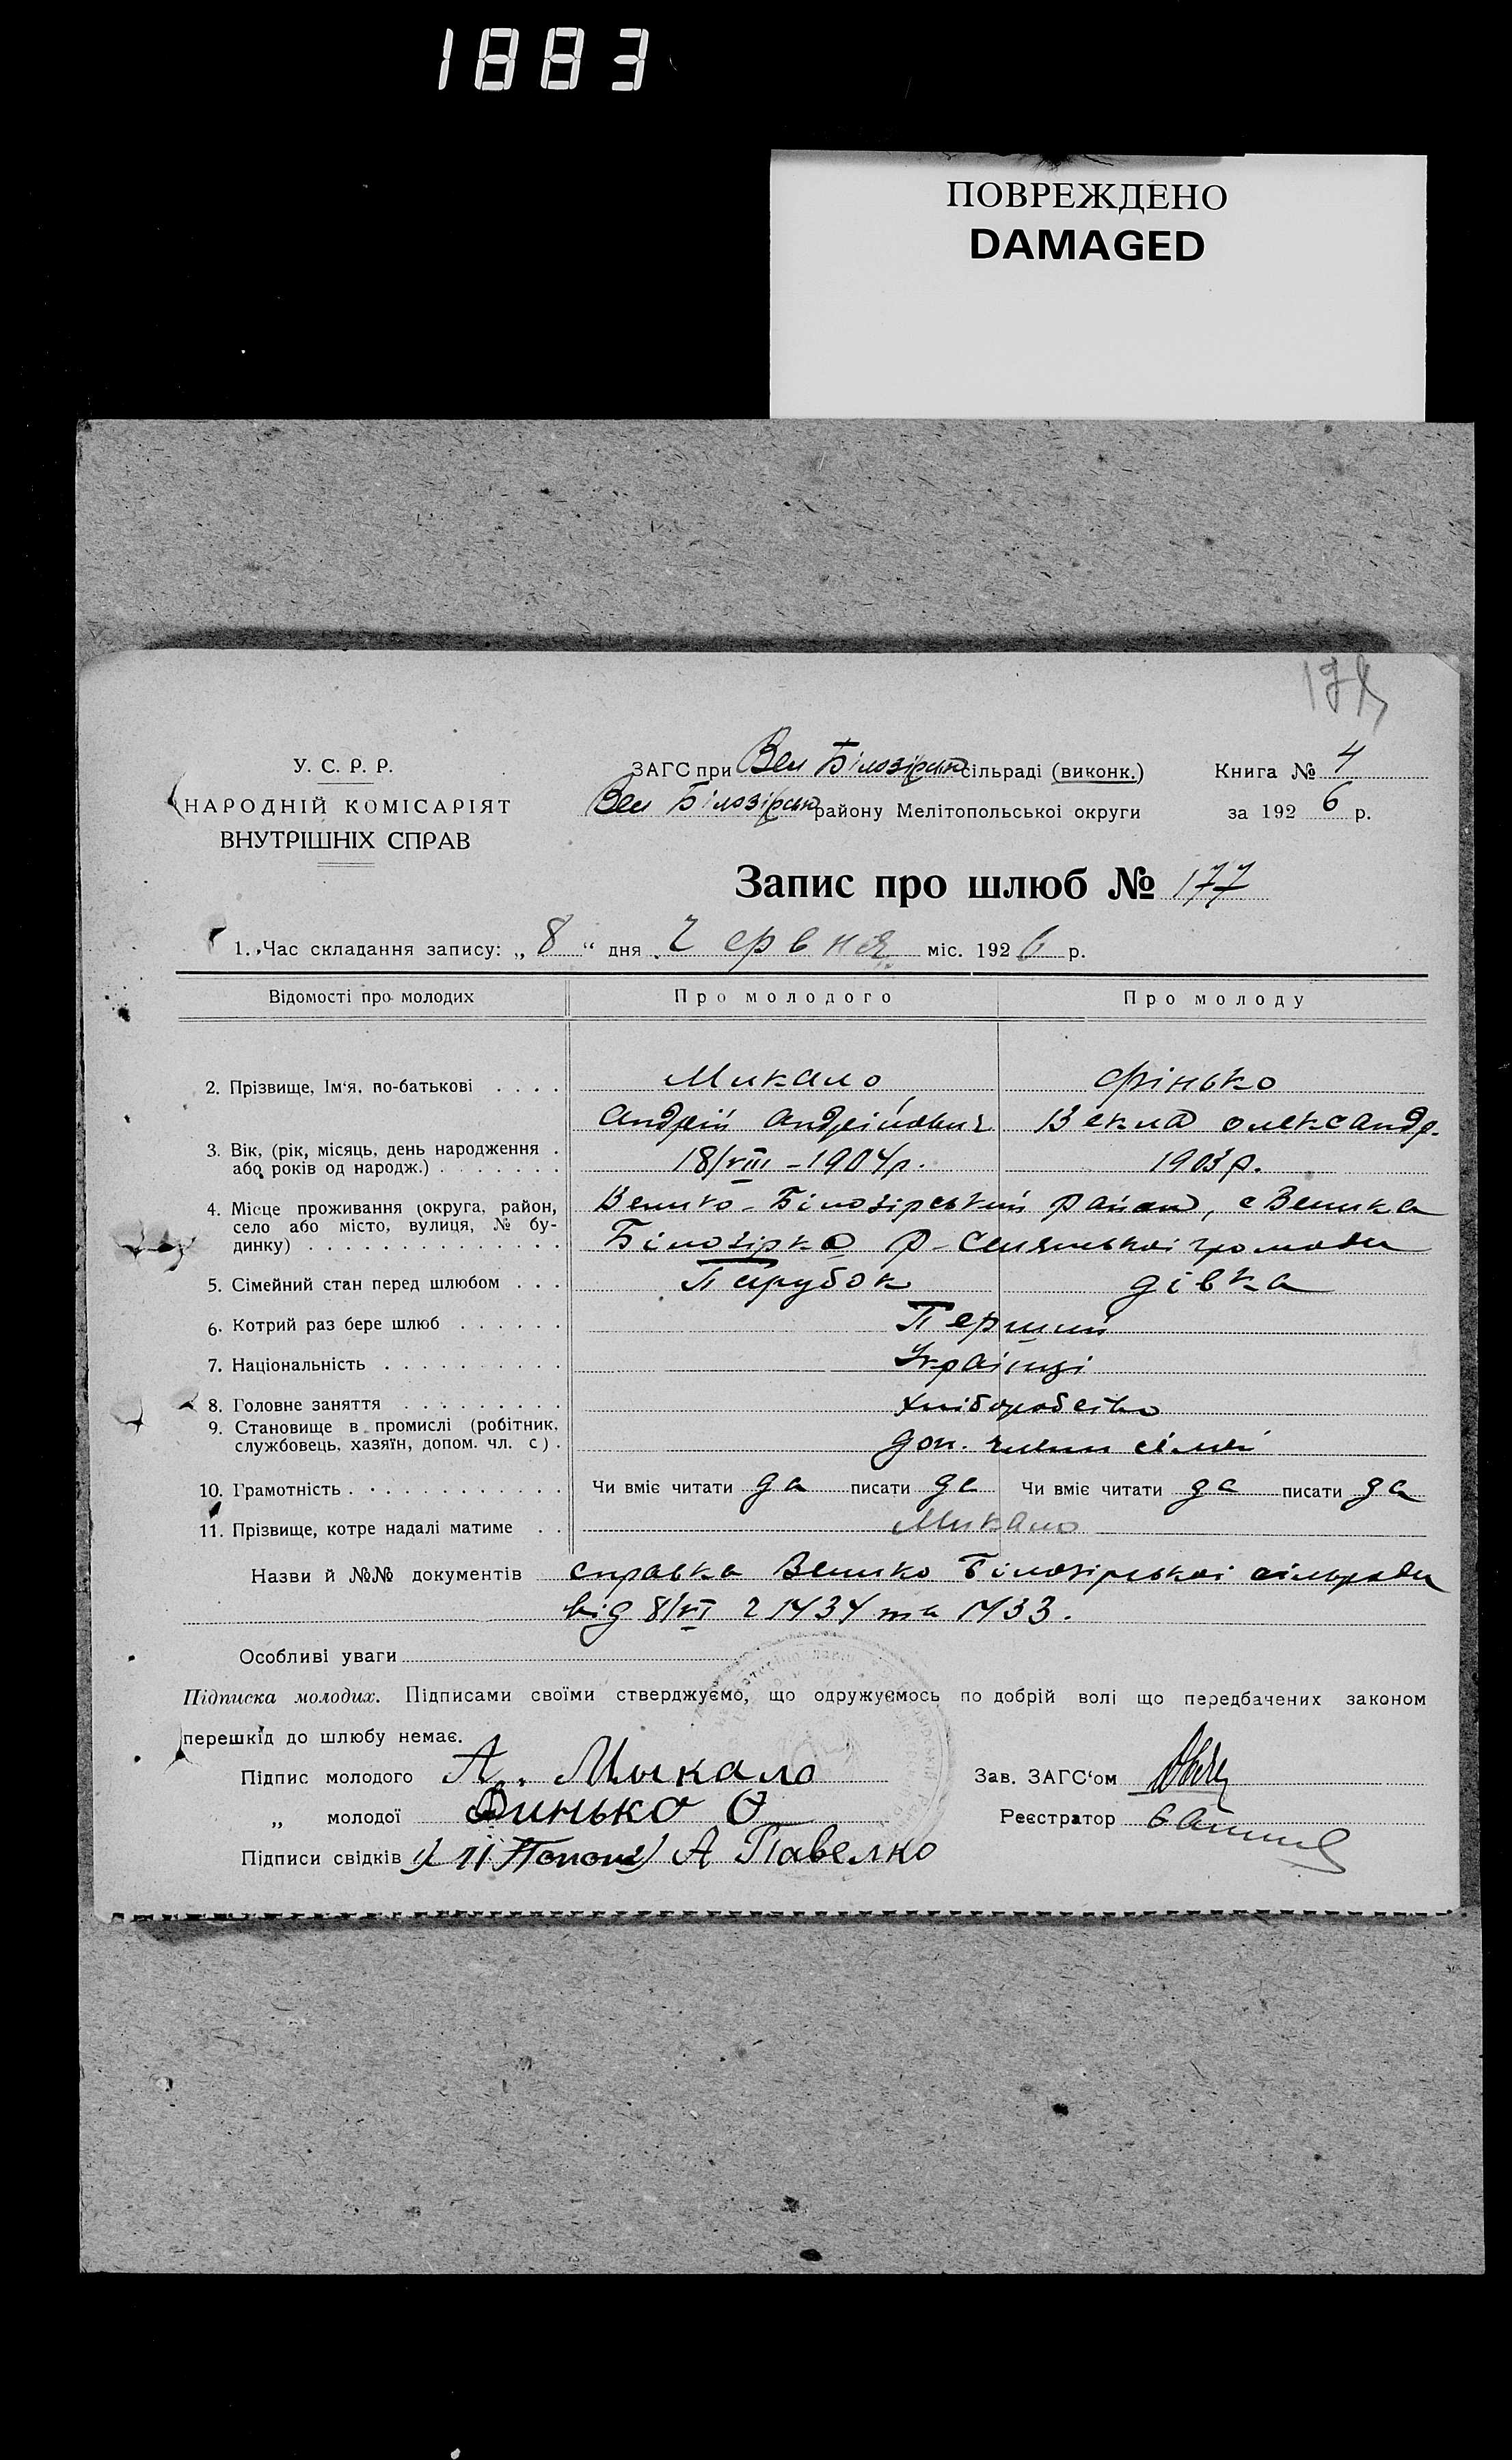 1883
ПОВРЕЖДЕНО
DAMAGED
У. С. Р. Р.
НАРОДНІЙ КОМІСАРІЯТ
ВНУТРІШНІХ СПРАВ
ЗАГС при Вел Білозірськ сільраді (виконк.)
Вел Білозірськ району Мелітопольської округи
Книга № 4
за 1926 р.
Запис про шлюб № 177
1. Час складання запису: „ 8 “ дня Червня міс. 1926 р.
Відомості про молодих Про молодого Про молоду
2. Прізвище, Ім‘я, по-батькові . . . . Микало Фінько
Андрій Андрійович Векла Олександр.
3. Вік, (рік, місяць, день народження .
або років од народж.) . . . . . . . 18/VIII – 1904 р. 1903 р.
4. Місце проживання (округа, район,
село або місто, вулиця, № бу-
динку) . . . . . . . . . . . . . .
Велико-Білозірський район, с Велика
Білозірка Р- громади
5. Сімейний стан перед шлюбом . . . Парубок дівка
6. Котрий раз бере шлюб . . . . . . Перший
7. Національність . . . . . . . . . . Українці
8. Головне заняття . . . . . . . . . хліборобство
9. Становище в промислі (робітник,
службовець, хазяїн, допом. чл. с) . доп. члени сімьї
10. Грамотність . . . . . . . . . . . . Чи вміє читати да писати да Чи вміє читати да писати да
11. Прізвище, котре надалі матиме . . Микало
Назви й №№ документів справка Велико Білозірської сільради
від 8/VI 2 1434 та 1433.
Особливі уваги
Підписка молодих. Підписами своїми стверджуємо, що одружуємось по добрій волі що передбачених законом
перешкід до шлюбу немає.
Підпис молодого А. Мыкало
Зав. ЗАГС‘ом
„ молодої Финько О
Реєстратор
Підписи свідків А Павелко